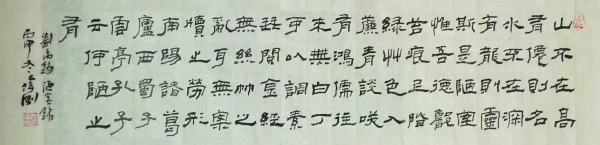 山不在高
有僊則名
水不在深
有龍則靈
斯是陋室
惟吾德馨
苔痕上階
緑艸色入
簾青談咲
有鴻儒往
來無白丁
可以調素
琴閱金經
無絲竹之
亂耳無案
牘之勞形
南陽諸葛
廬西蜀子
雲亭孔子
云何陋之
有
劉禹錫陋室銘
丙申冬